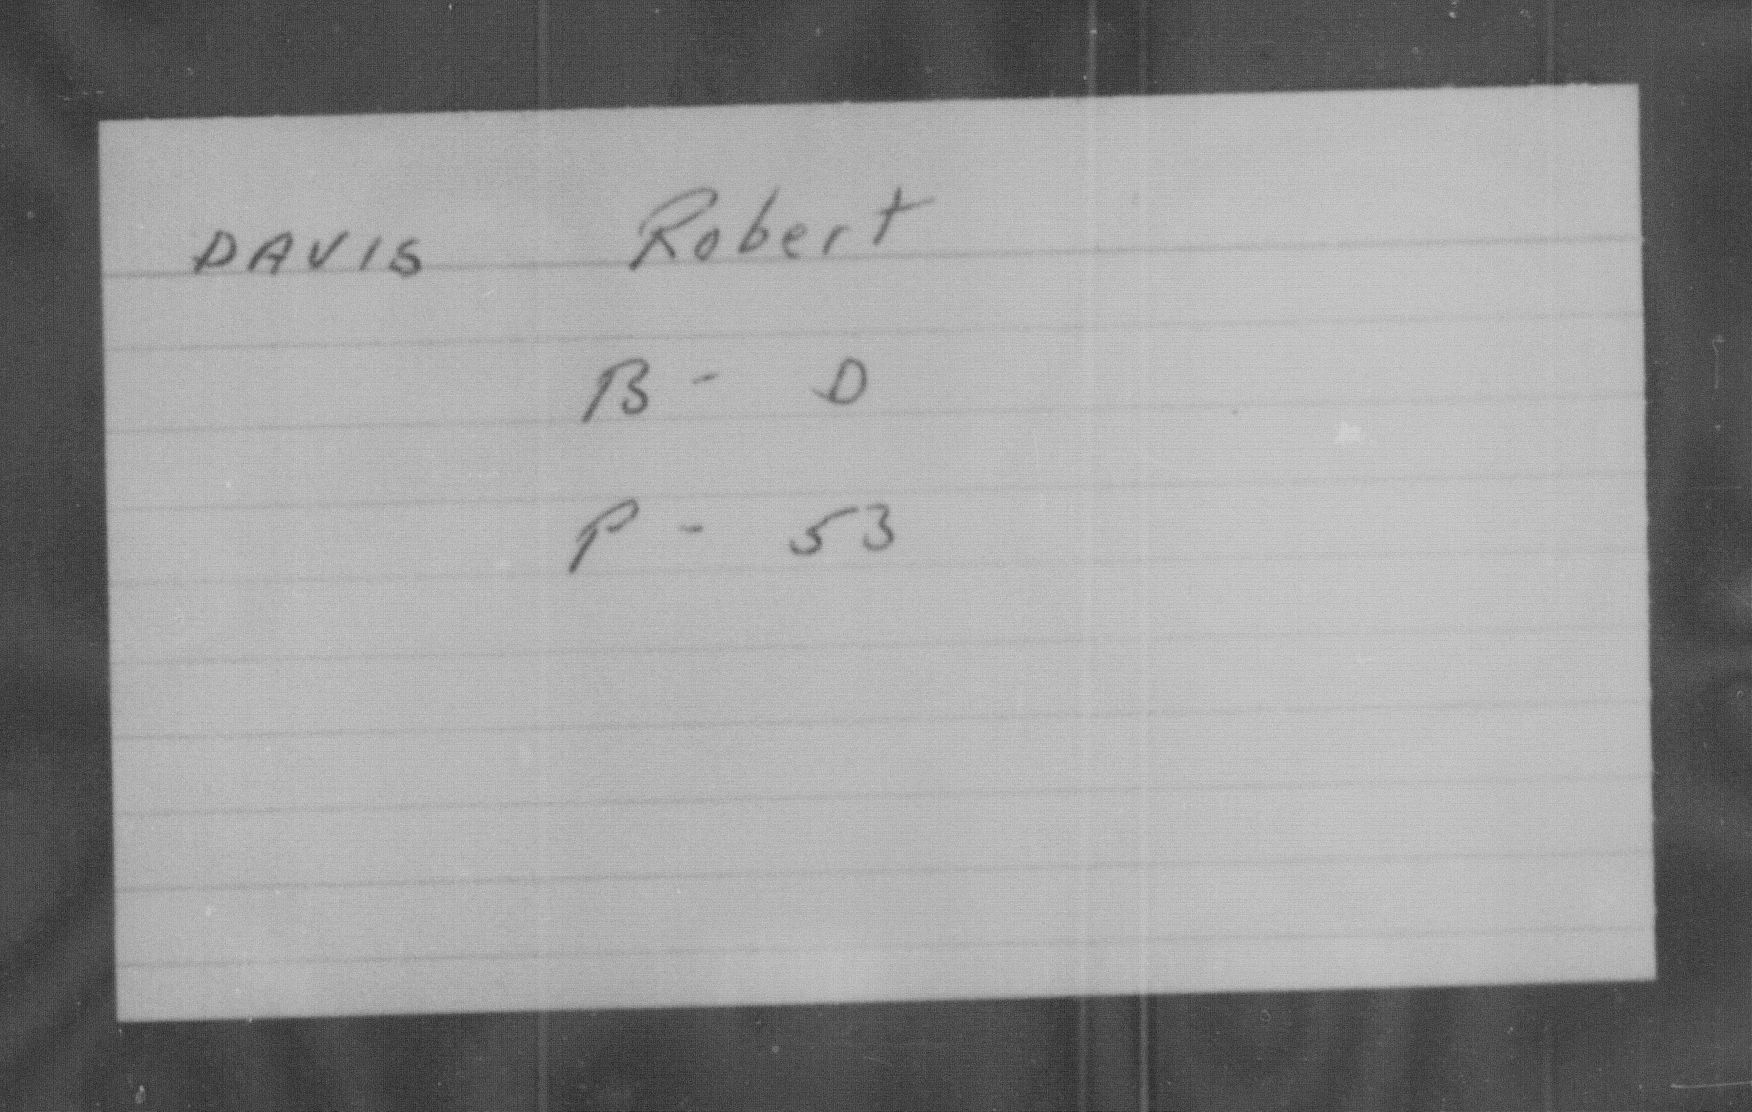 DAVIS Robert
B - D
P - 53